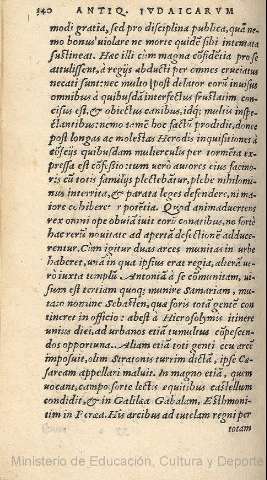 340 ANTIQ. IVDAICARVM
modi gratia, sed pro disciplina publica, quã ne-
mo bonus uiolare ne morte quidẽ sibi intentata
sustineat. Hæc illi cum magna cõfidẽtia pro se
attulissent, à regijs abducti per omnes cruciatus
necati sunt: nec multo post delator eorũ inuisus
omnibus à quibusdã interfectus frustatim con-
cisus est, & obiectus canibus, idq; multis inspe-
ctantibus: nemo tamẽ hoc factũ prodidit, donec
post longas ac molestas Herodis inquisitiones à
cõscijs quibusdam mulierculis per tormẽta ex-
pressa est cõfessio: tum uerò autores eius facino-
ris cũ totis familijs plectebãtur, plebe nihilomi-
nus interrita, & parata leges defendere, ni ma-
iore cohiberetur potẽtia. Quod animaduertens
rex omni ope obuiã iuit eorũ conatibus, ne fortè
hac rerũ nouitate ad apertã defectionẽ adduce-
rentur. Cùm igitur duas arces munitas in urbe
haberet, unã in qua ipsius erat regia, alterã ue-
rò iuxta templũ Antoniã à se cõmunitam, ui-
sum est tertiam quoq; munire Samariam, mu-
tato nomine Sebasten, quæ foris totã gentẽ con
tineret in officio: abest à Hierosolymis itinere
unius diei, ad urbanos etiã tumultus cõpescen-
dos opportuna. Aliam etiã toti genti ceu arcẽ
imposuit, olim Stratonis turrim dictã, ipse Cæ-
saream appellari maluit. In magno etiã, quem
uocant, campo forte lectis equitibus castellum
condidit, & in Galilæa Gabalam, Esthmoni-
tim in Peræa. His arcibus ad tutelam regni per
totam
Ministerio de Educación, Cultura y Deporte